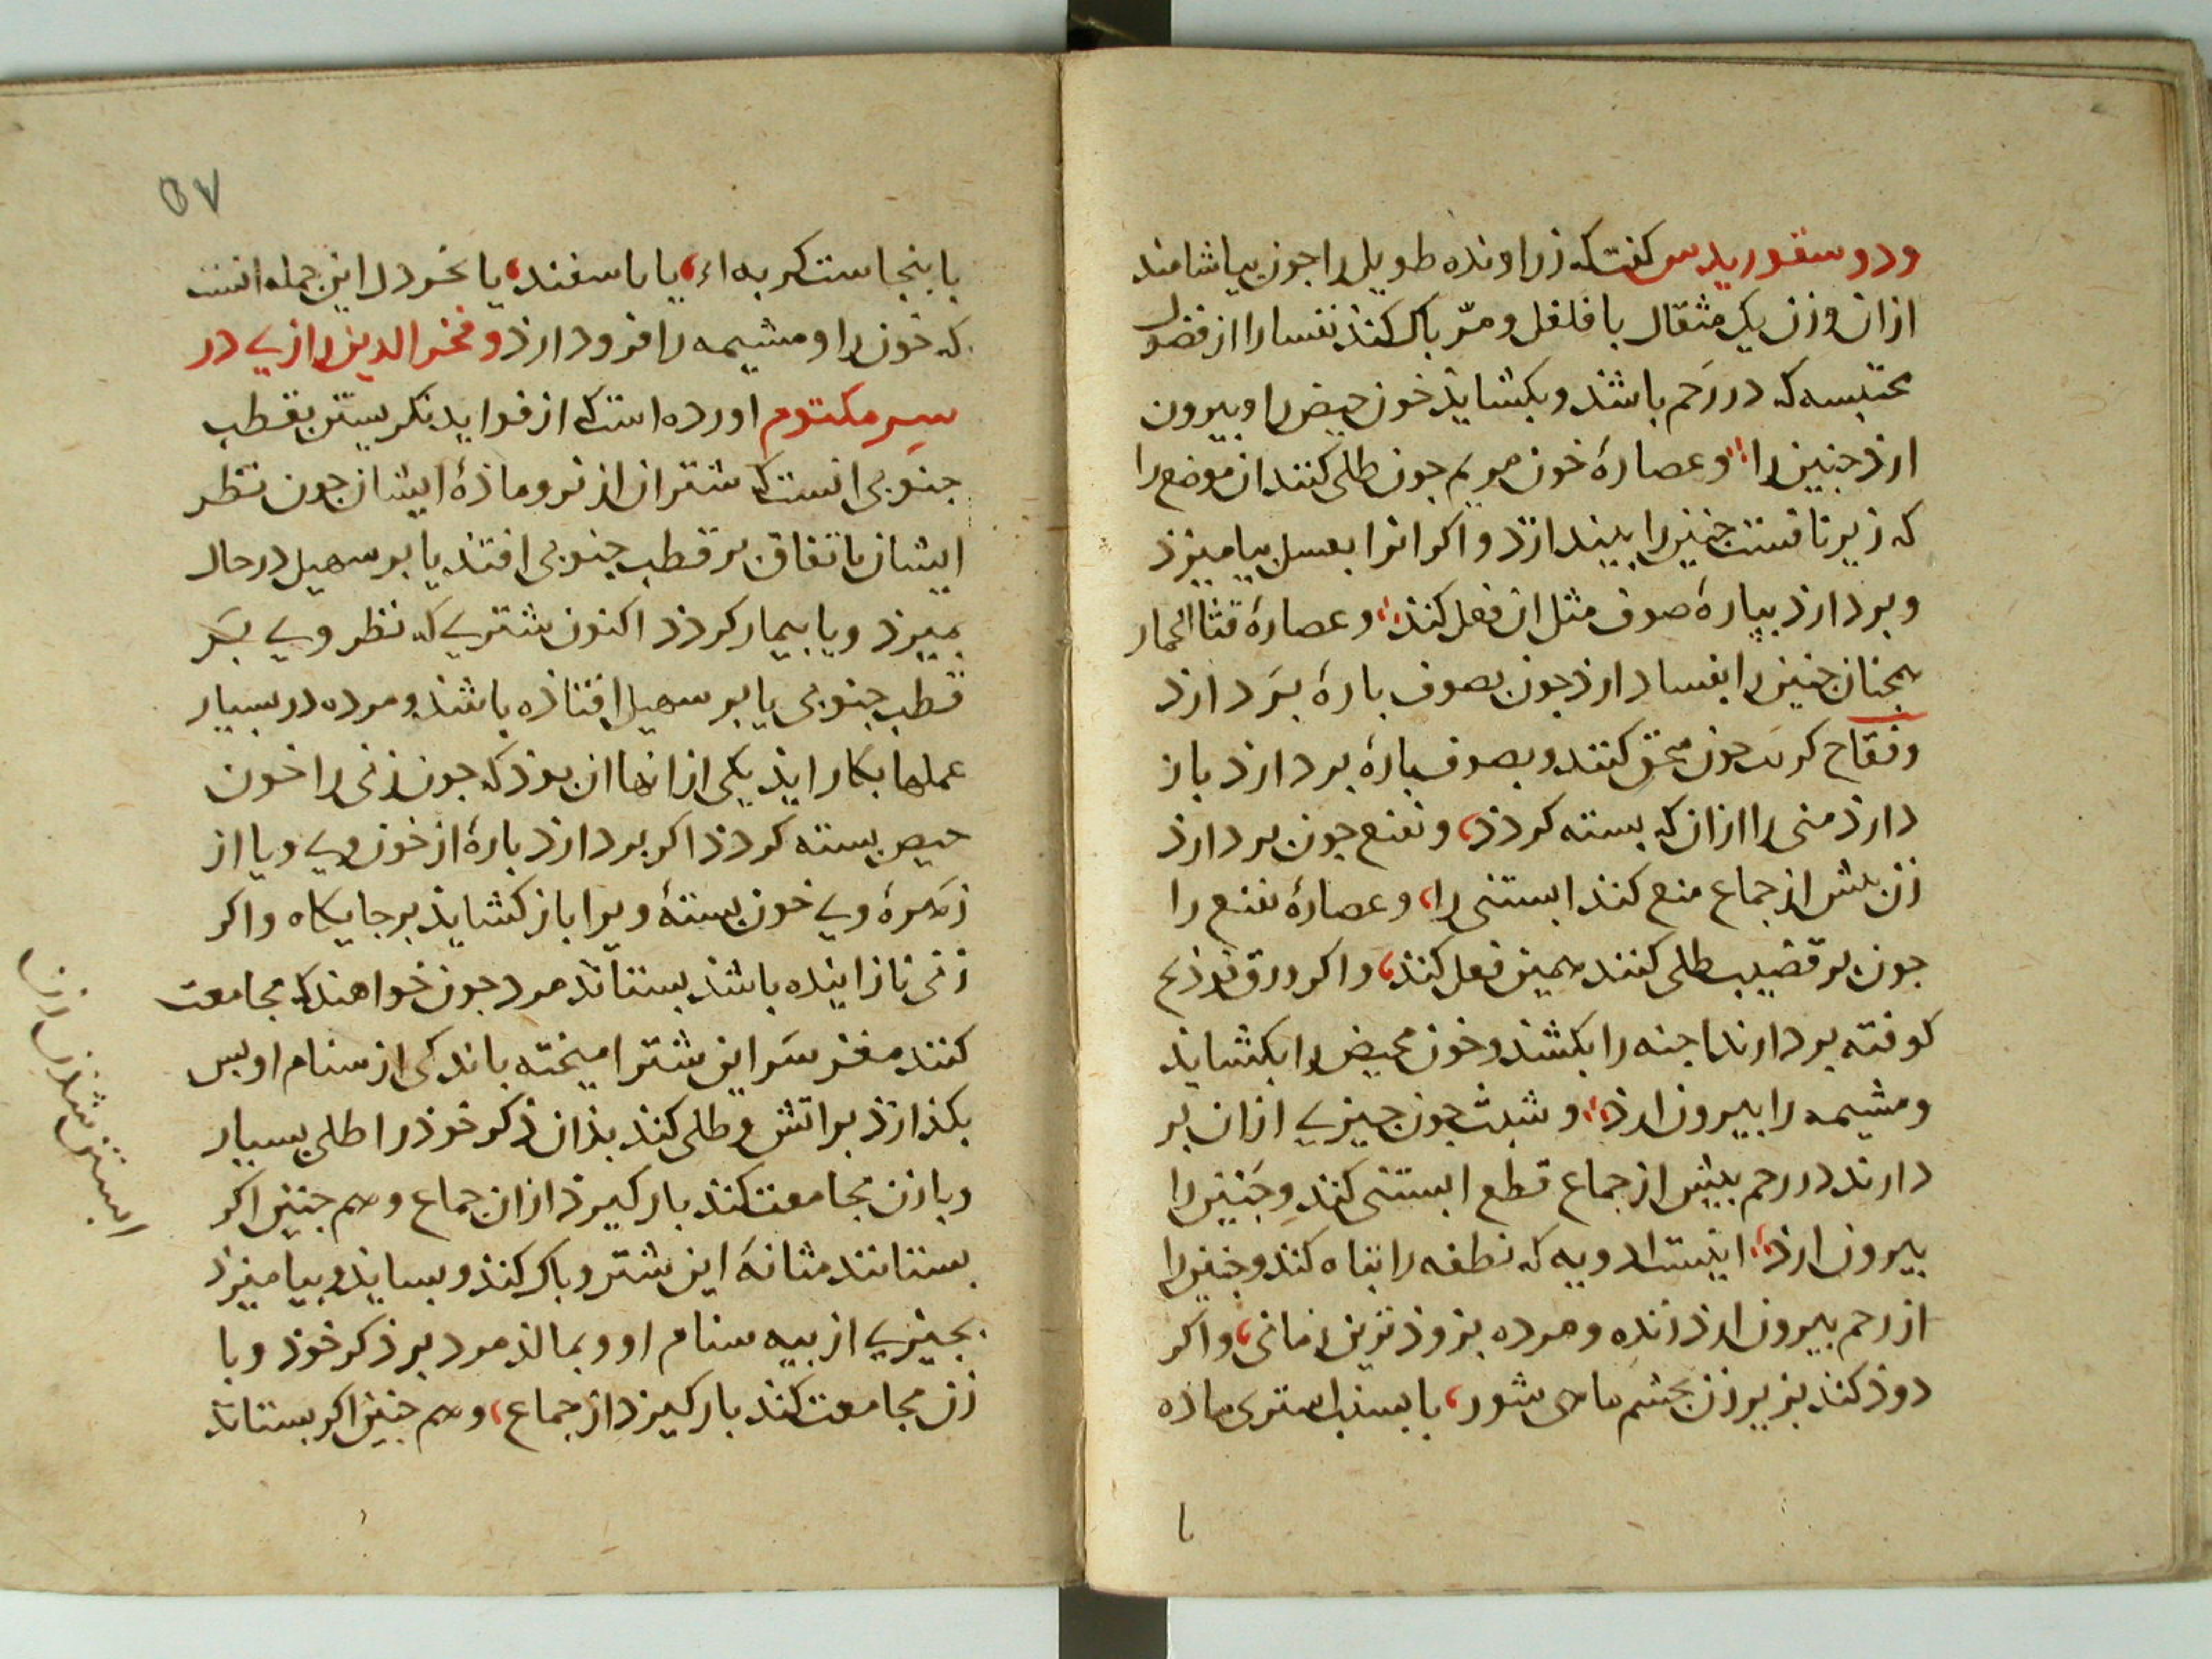 ودوسقوریدس کفت که زراونده طویل را جون بیاشامند
ازان وزن یک مثقال با فلفل و مرّ باک کنذ نفسا را از فضول
محتبسه که در رَحم باشذ و بکشایذ خون حیض را و بیرون
ارذ جنین را، و عصارهٔ خون مریم جون طلی کنند ان موضع را
که زیر نافست جنین را بیندازذ و اکر انرا بعسل بیامیزذ
و بردارذ بپارهٔ صوف مثل ان فعل کنذ، و عصارهٔ قثا الحمار
همجنان جنین را بفساد ارذ جون بصوف بارهٔ بَردارذ
و فقاح کرنب جون سحق کنند و بصوف بارهٔ بردارذ باز
دارذ منی را ازان که بسته کردذ، و نعنع جون بردارذ
زن بیش از جماع منع کند ابستنی را، و عصارهٔ نعنع را
جون بر قضیب طلی کنند همین فعل کنذ، و اکر ورق فوذنج
کوفته بردارند اجنه را بکشذ و خون محیض را بکشایذ
و مشیمه را بیرون ارذ، و شبت جون جیزی ازان بر
دارند در رحم بیش از جماع قطع ابستنی کند و جَنین را
بیرون ارذ، اینست ادویه که نطفه را تباه کنذ و جنین را
از رحم بیرون ارذ زنده و مرده بزوذترین زمانی، و اکر
دوذ کنذ بزیر زن بجشم ماهی شور، یا بسنب استری ماذه
یا
٥٧
یا بنجاست کربه اء، یا باسفند، یا بخردل این جمله انست
که خون را و مشیمه را فرود ارذ و فخر الدین رازی در
سِر مکتوم اورده است که از فواید نکریستن بقطب
جنوبی انست که شتران از نر و ماذهٔ ایشان جون نظر
ایشان باتفاق بر قطب جنوبی افتد یا بر سهیل در حال
بمیرذ و یا بیمار کردذ اکنون شتری که نظر وی بَر
قطب جنوبی یا بر سهیل افتاذه باشذ و مرده در بسیار
عملها بکار ایذ یکی ازانها ان بوذ که جون زنی را خون
حیض بسته کردذ اکر بردارذ بارهٔ از خون وی و یا از
زَهرهٔ وی خون بستهٔ ویرا باز کشایذ بر جایکاه و اکر
زنی نازاینده باشذ بستاند مرد جون خواهند که مجامعت
کنند مغز سَر این شتر امیخته باندکی از سنام او بس
بکذارذ بر اتش و طلی کند بذان ذکر خوذ را طلی بسیار
و با زن مجامعت کنذ بار کیرذ ازان جماع و هم جنین اکر
بستانند مثانهٔ این شتر و باک کنذ و بساید و بیامیزذ
بجیزی از بیه سنام او و بمالذ مرد بر ذکر خوذ و با
زن مجامعت کند بار کیرذ از جماع، و هم جنین اکر بستانذ
ابستن شدن زن